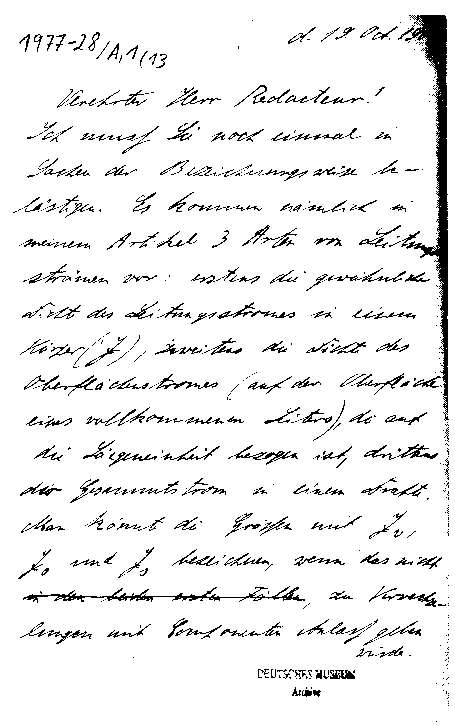 1977-28/A,1(13
d. 19 Oct. 19
Verehrter Herr Redacteur!
Ich muss Sie noch einmal in
Sachen der Bezeichnungsweise be-
lästigen. Es kommen nämlich in
meinem Artikel 3 Arten von Leitungs
strömen vor: erstens die gewöhnliche
Dicht des Leitungsstromes in einem
Körper (J), zweitens die Dicht des
Oberflächenstromes (auf der Oberfläche
eines vollkommenen Leiters), die auf
die Längeneinheit bezogen ist, drittens
der Gesammtstrom in einem Drahte.
Man könnt die Grössen mit J
J und J bezeichnen, wenn das nicht
in den beiden ersten Fällen, zu Verwechs-
lungen mit Componenten Anlass geben
würde.
DEUTSCHES MUSEUM
Archive